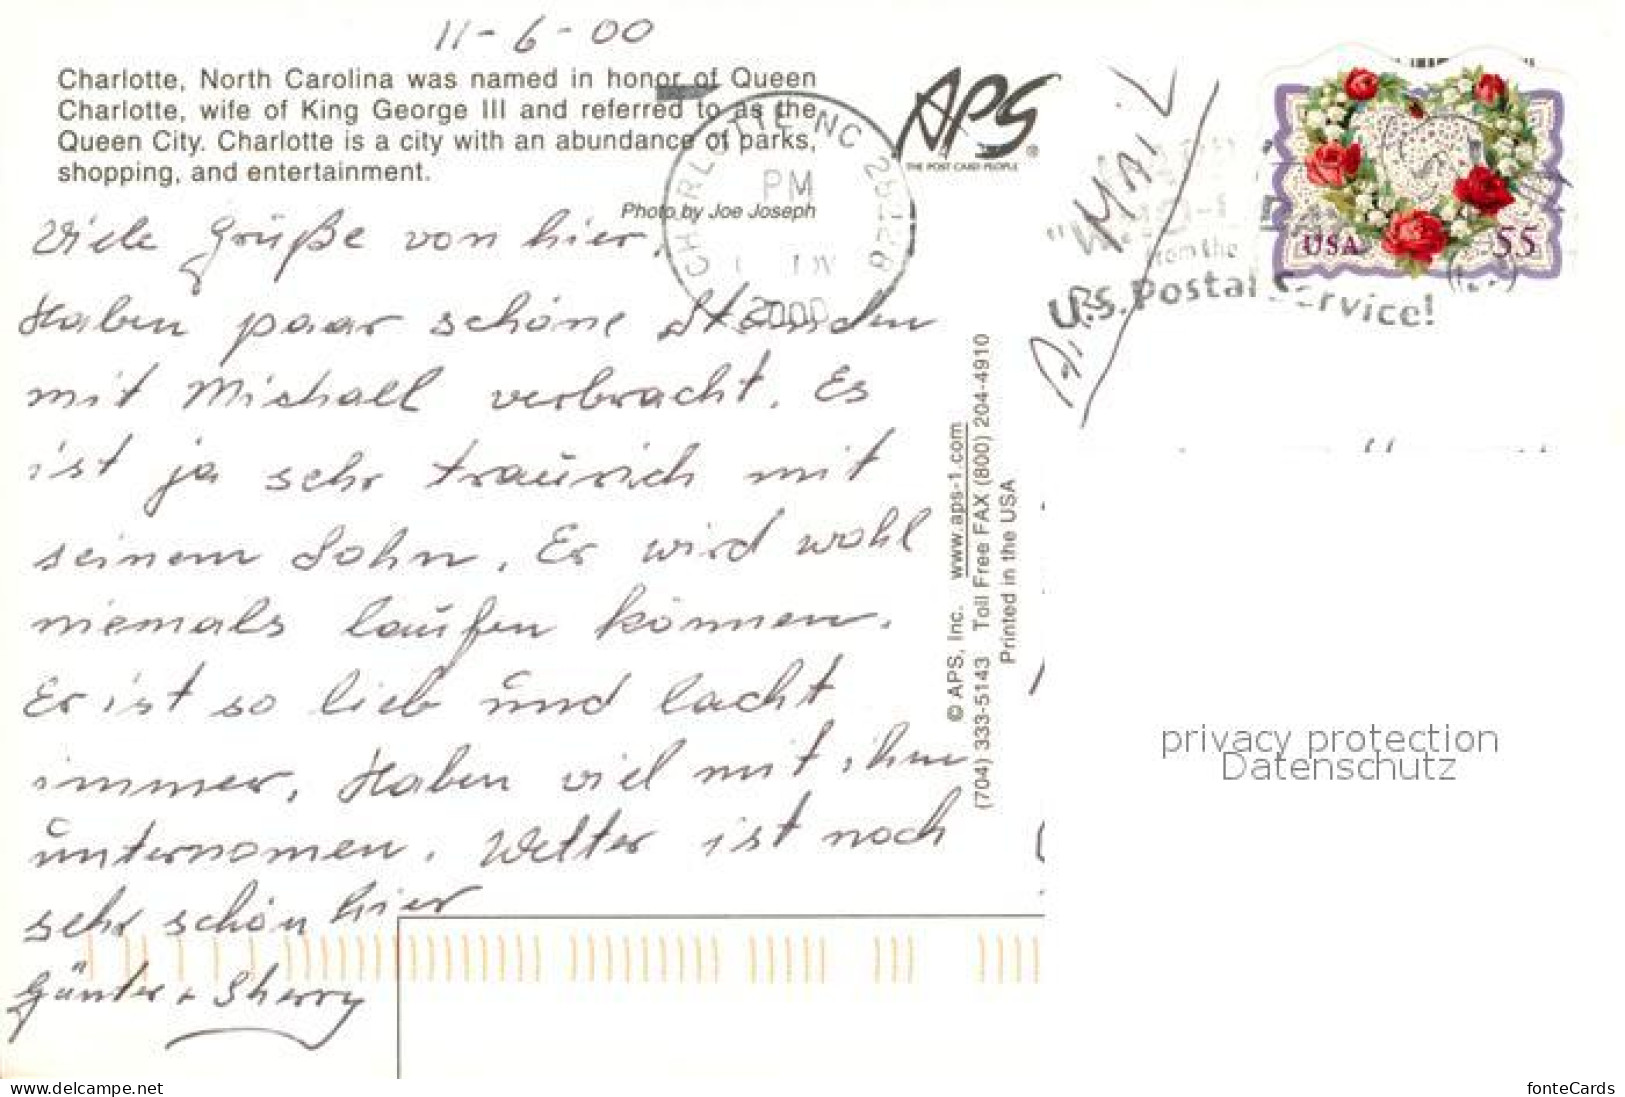 11-6-00
Charlotte, North Carolina was named in honor of Queen
Charlotte, wife of King George III and referred to as the
Queen City. Charlotte is a city with an abundance of parks,
shopping, and entertainment.
Photo by Joe Joseph
Viele Grüße von hier.
Haben paar schöne Stunden
mit Michael verbracht. Es
ist ja sehr traurich mit
seinem Sohn. Er wird wohl
niemals laufen können.
Er ist so lieb und lacht
immer. Haben viel mit ihm
unternomen. Wetter ist noch
sehr schön hier
Günter + Sherry
APS
THE POST CARD PEOPLE
CHARLOTTE NC
PM
2000
AIR MAIL
from the
U.S. Postal Service!
USA 55
© APS, Inc. www.aps-1.com
(704) 333-5143 Toll Free FAX (800) 204-4910
Printed in the USA
privacy protection
Datenschutz
www.delcampe.net
fonteCards